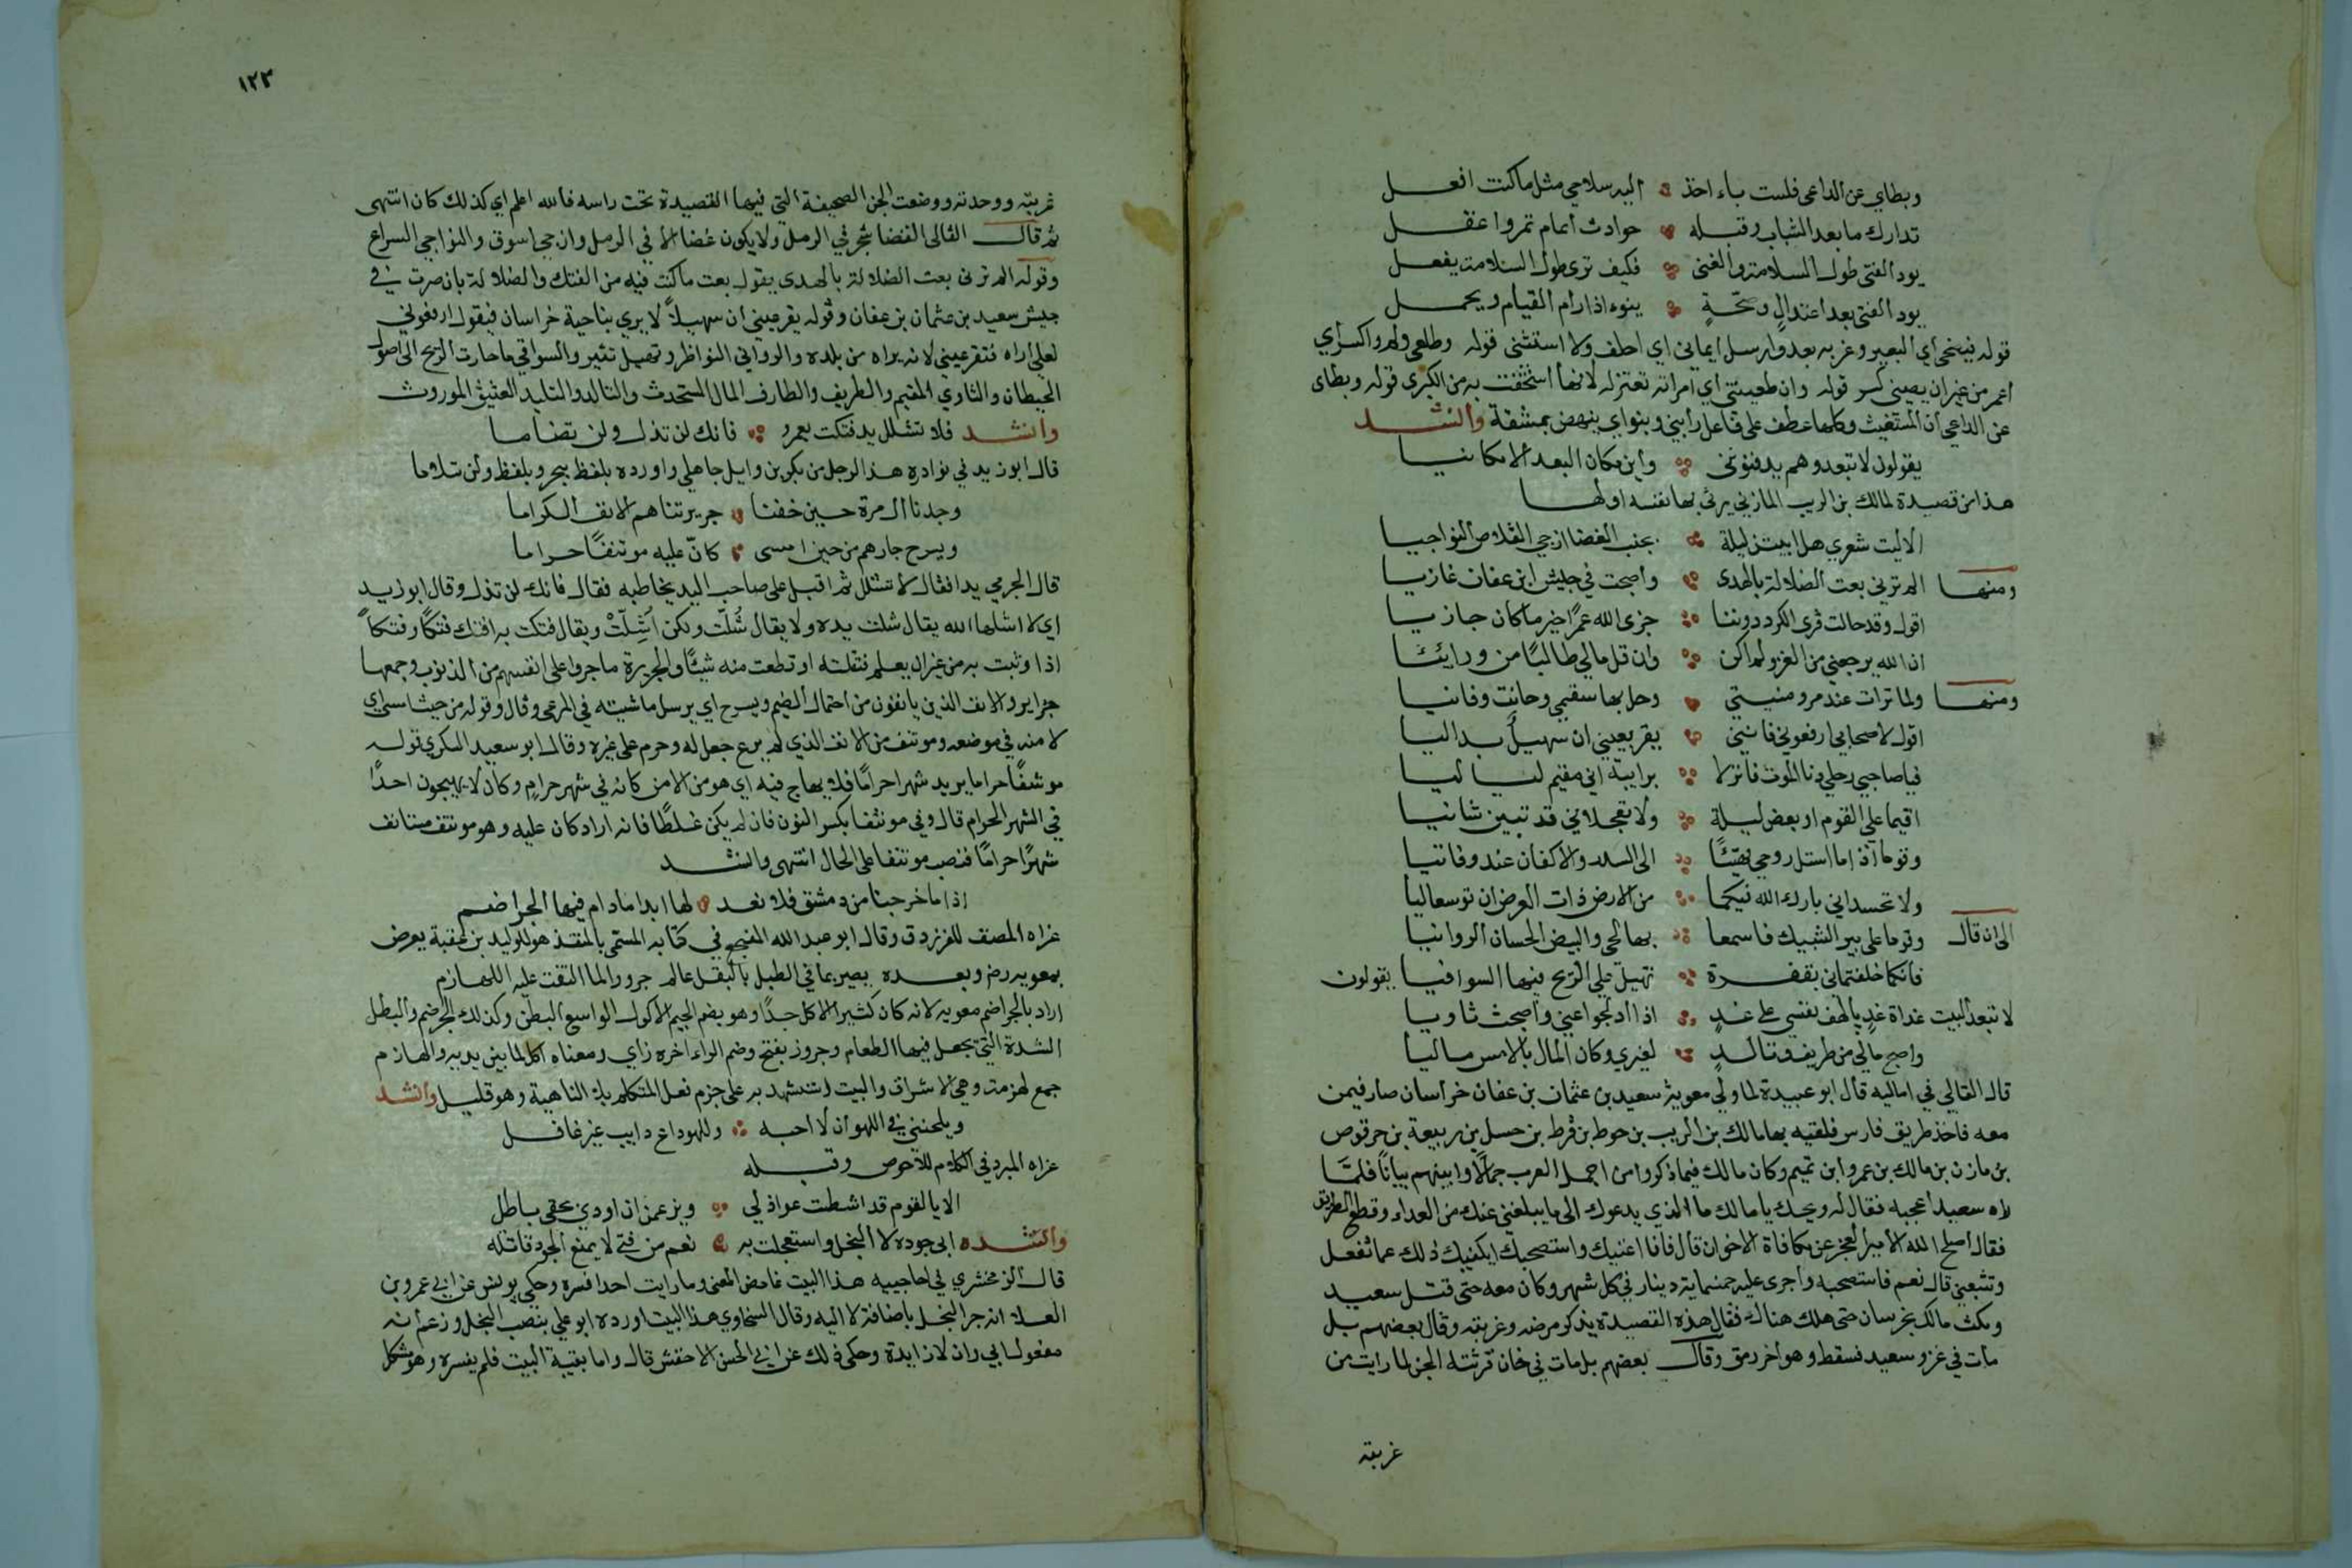 وبطاي عن الداعي فلست باءاخذ اليه سلامي مثل ما كنت افعل
تدارك ما بعد الشباب وقبله حوادث أيام تمر واغفل
يود الفتى طول السلامة والغنى فكيف ترى طول السلامة يفعل
يود الفتى بعد اعتدالٍ وصحّةٍ ينوء اذا رام القيام ويحمل
قوله فيضحى اي البعير وغربه بعد وارسل ايماني اي احلف ولا استثنى قوله وظلعي ولم اكسر اي
اعمر من غير ان يصيبني كسر قوله وان ظعينتي اي امراته تعتزله لانها استخفت به من الكبرى قوله وبطاى
عن الداعي ان المستغيث وكلها عطف على فاعل رابني وينواي ينهض بمشقة وانشد
يقولون لا تبعد وهم يدفنونني وأين مكان البعد الا مكانيا
هذا من قصيدة لمالك بن الريب المازني يرثي بها نفسه اولها
الا ليت شعري هل ابيتن ليلة بجنب الغضا ازجي القلاص النواجيا
ومنها الم ترني بعت الضلالة بالهدى واصبحت في جيش ابن عفان غازيا
اقول وقد حالت قرى الكرد دوننا جزى الله عمرًا خير ما كان جازيا
ان الله يرجعني من الغزو لم اكن وان قل مالي طالبًا من ورايئا
ومنها ولما ترات عند مرو منيتي وحل بها سقمي وحانت وفاتيا
اقول لاصحابي ارفعوني فانني يقر بعيني ان سهيلٌ بدا ليا
فيا صاحبي رحلي دنا الموت فانزلا برابيةٍ اني مقيم لياليا
اقيما علي القوم او بعض ليلة ولا تعجلاني قد تبين شانيا
وقوما اذا ما استل روحي فهيّئا الى السدر والاكفان عند وفاتيا
ولا تحسداني بارك الله فيكما من الارض ذات العرض ان توسعا ليا
الى ان قال وقوما على بير الشبيك فاسمعا بها الحي والبيض الحسان الروانيا
فانكما خلفتماني بقفرة تهيل علي الريح فيها السوافيا يقولون
لا تبعد البيت غداة غدٍ يا لهف نفسي على غدٍ اذا ادلجوا عني واصبحت ثاويا
واصبح مالي من طريف وتالدٍ لغيري وكان المال بالامس ماليا
قال القالي في اماليه قال ابو عبيدة لما ولي معوية سعيد بن عثمان بن عفان خراسان صار فيمن
معه فاخذ طريق فارس فلقيه بها مالك بن الريب بن حوط بن قرط بن حسل بن ربيعة بن حرقوص
بن مازن بن مالك بن عمرو ابن تميم وكان مالك فيما ذكروا من اجمل العرب جمالًا وابينهم بيانًا فلمّا
راه سعيد اعجبه فقال له ويحك يا مالك ما الذي يدعوك الى ما يبلغني عنك من العداء وقطع الطريق
فقال اصلح الله الامير العجز عن مكافاة الاخوان قال فان انا اغنيتك واستصحبتك ايكفيك ذلك عما تفعل
وتتبعني قال نعم فاستصحبه واجرى عليه خمسماية دينار في كل شهر وكان معه حتى قتل سعيد
ومكث مالك بخرسان حتى هلك هناك فقال هذه القصيدة يذكر مرضه وغربته وقال بعضهم بل
مات في غزو سعيد فسقط وهو اخر رمق وقال بعضهم بل مات في خان فرثته الجن لما رايت من
غربته
١٢٣
غربته ووحدته ووضعت الجن الصحيفة التي فيها القصيدة تحت راسه فالله اعلم اي كذلك كان انتهى
ثم قال القالي الغضا شجر في الرمل ولا يكون غضا الا في الرمل وازجي اسوق والنواجي السراع
وقوله الم ترني بعت الضلالة بالهدى يقول بعت ما كنت فيه من الفتك والضلالة بان صرت في
جيش سعيد بن عثمان بن عفان وقوله يقر عيني ان سهيلاً لا يري بناحية خراسان فيقول ارفعوني
لعلي اراه فتقر عيني لانه يراه من بلده والرواني النواظر وتهيل تثير والسوافي ما حازت الريح الى اصول
الحيطان والثاوي المقيم والطريف والطارف المال المستحدث والتالد والتليد العتيق الموروث
وانشد فلا تشلل يد فتكت بعمرو فانك لن تذل ولن تضاما
قال ابو زيد في نوادره هذا الرجل من بكر بن وايل جاهلي واورده بلفظ ببحر وبلفظ ولن تلاما
وجدنا ال مرة حين خفنا جريرتنا هم الانف الكراما
ويسرح جارهم من حين امسى كانّ عليه موتنفًا حراما
قال الجرمي يدا فقال لا تشلل ثم اقبل على صاحب اليد يخاطبه فقال فانك لن تذل وقال ابو زيد
اي لا اشلها الله يقال شلت يده ولا يقال شُلّت ولكن اُشِلّتْ ويقال فتكت به افتك فتكًا وفتكاً
اذا وثبت به من غير ان يعلم فقتلته او قطعت منه شيئًا والجريرة ما جروا على انفسهم من الذنوب وجمعها
جراير والانف الذين يانفون من احتمال الضيم ويسرح اي يرسل ماشيته في المرعى وقال وقوله من حيث امسى اي
لا منه في موضعه وموتنف من الانف الذي لم يرع جعل له وحرم على غيره وقال ابو سعيد السكري قوله
موتنفًا حراما يريد شهرا حرامًا فلا يهاج فيه اي هو من الامن كانه في شهر حرامٍ وكان لا يهيجون احدًا
في الشهر الحرام قال وفي موتنفا بكسر النون فان لم يكن غلطًا فانه اراد كان عليه وهو موتنف مستانف
شهرًا حرامًا فنصب موتنفا على الحال انتهى وانشد
اذا ما خرجنا من دمشق فلا نعد لها ابدا ما دام فيها الجراضم
عزاه المصنف للفرزدق وقال ابو عبدالله المفجع في كتابه المسمى بالمنقذ هو للوليد بن عقبة يعرض
بمعويه رضـ وبعده بصير بما في الطبل بالبقل عالم جروز لما التقت عليه اللهازم
اراد بالجراضم معويه لانه كان كثير الاكل جدًا وهو بضم الجيم الاكول الواسع البطن وكذلك الجرضم والبطل
الشدة التي يجعل فيها الطعام وجروز بفتح وضم الراء اخره زاي ومعناه اكل لما بين يديه واللهازم
جمع لهزمة وهي الاشداق والبيت استشهد به على جزم فعل المتكلم بلا الناهية وهو قليل وانشد
ويلحنني في اللهو ان لا احبه وللهو داع دايب غير غافل
عزاه المبرد في الكامل للاحوص وقبله
الا يا لقوم قد اشطت عواذلي ويزعمن ان اودى بحقي باطل
وانشده ابى جوده لا البخل واستعجلت به نعم من فتى لا يمنع الجود قاتله
قال الزمخشري في احاجييه هذا البيت غامض المعنى وما رايت احدا فسره وحكي يونس عن ابي عمرو بن
العلا انه جر البخل باضافة لا اليه وقال السخاوي هذا البيت اورده ابو علي بنصب البخل وزعم انه
مفعول ابي وان لا زايدة وحكى ذلك عن ابي الحسن الاخفش قال واما بقية البيت فلم يفسره وهو مشكل